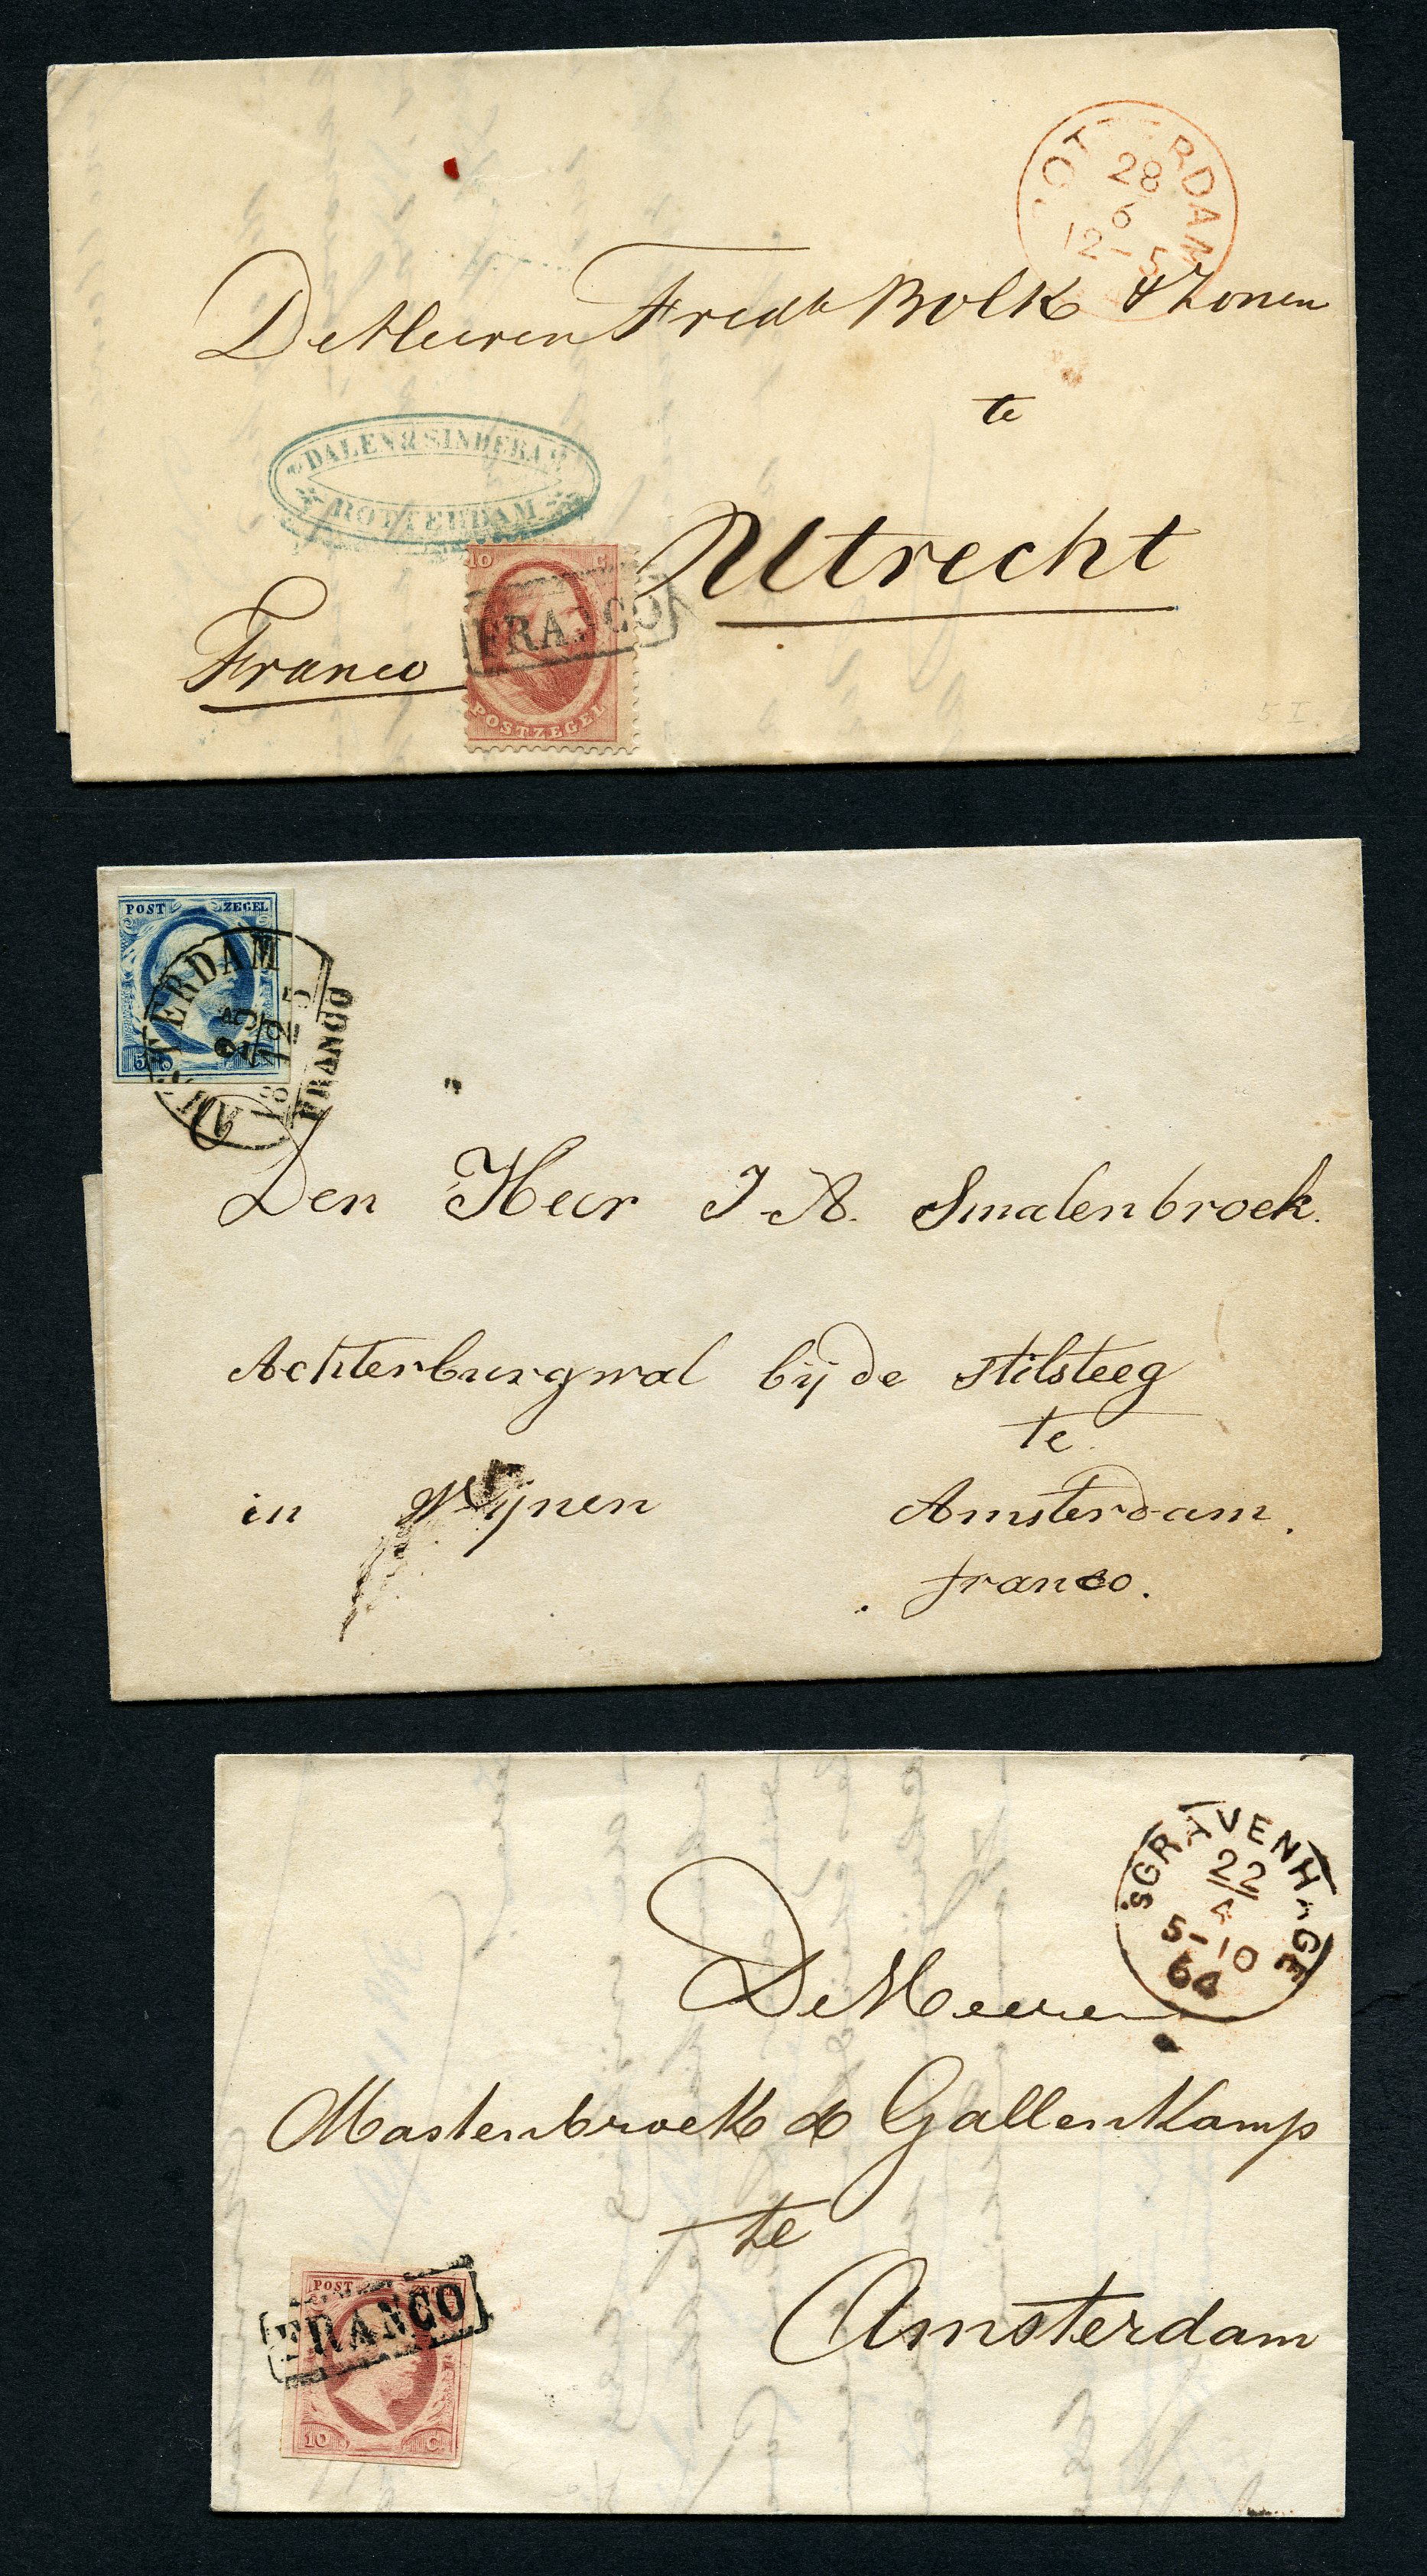 ROTTERDAM
28
6
12-5
De Heeren Fredk Bolk & Zonen
te
DALEN & SINDERAM
ROTTERDAM
Utrecht
10 C
FRANCO
POSTZEGEL
Franco
5 I
POST ZEGEL
5
AMSTERDAM
FRANCO
Den Heer J. A. Smalenbroek.
Achterburgwal bij de Stilsteeg
te
in Wijnen Amsterdam.
franco.
'SGRAVENHAGE
22
4
5-10
64
De Heeren
Mastenbroek & Gallenkamp
te
Amsterdam
POST ZEGEL
FRANCO
10 C